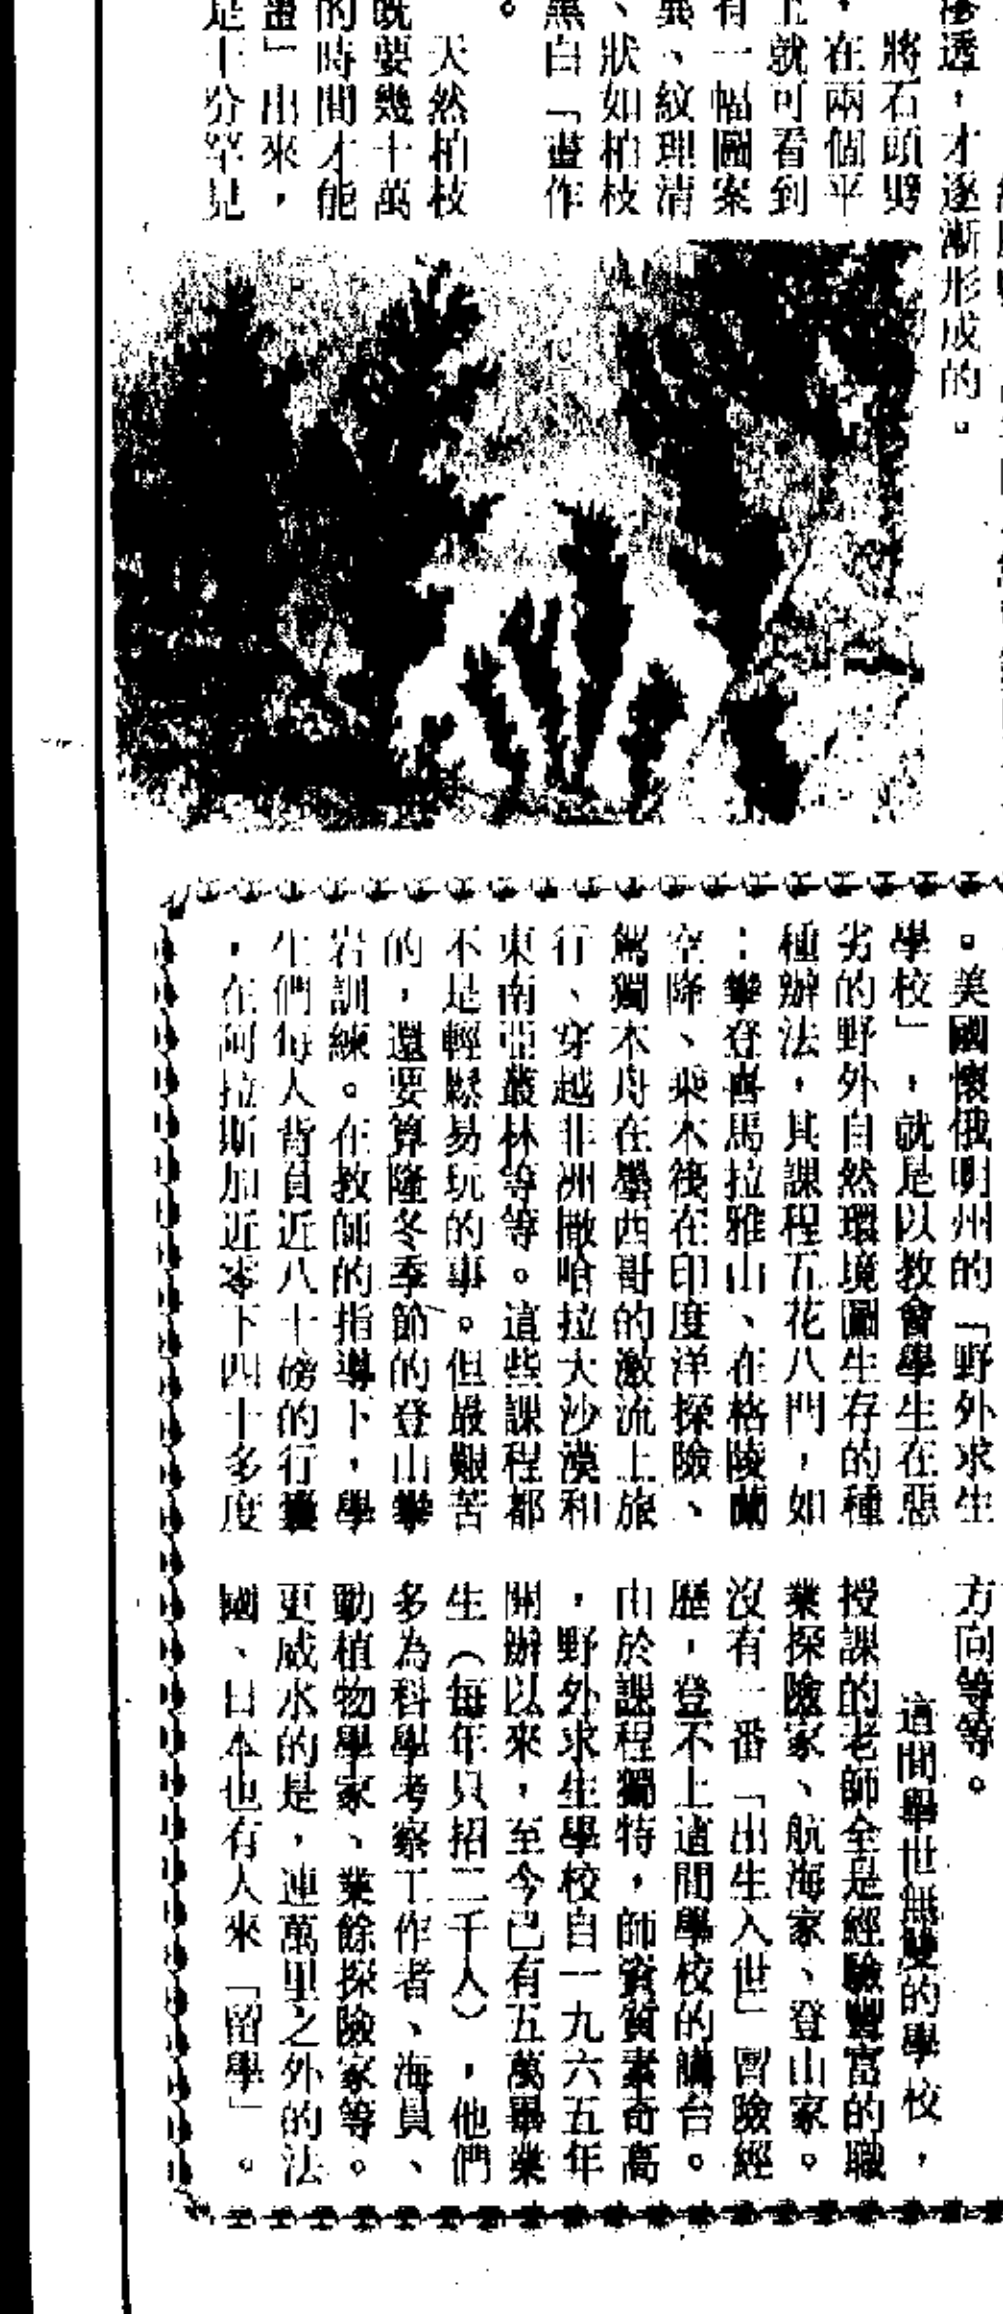 滲透，才逐漸形成的。
將石頭劈
，在兩個平
上就可看到
有一幅圖案
異、紋理清
、狀如柏枝
黑白「畫作
。
天然柏枝
既要幾十萬
的時間才能
畫」出來，
是十分罕見
。美國懷俄明州的「野外求生
學校」，就是以教會學生在惡
劣的野外自然環境圖生存的種
種辦法，其課程五花八門，如
：攀登喜馬拉雅山、在格陵蘭
空降、乘木筏在印度洋探險、
駕獨木舟在墨西哥的激流上旅
行、穿越非洲撒哈拉大沙漠和
東南亞叢林等等。這些課程都
不是輕鬆易玩的事。但最艱苦
的，還要算隆冬季節的登山攀
岩訓練。在教師的指導下，學
生們每人背負近八十磅的行囊
，在阿拉斯加近零下四十多度
方向等等。
這間舉世無雙的學校，
授課的老師全是經驗豐富的職
業探險家、航海家、登山家。
沒有一番「出生入世」冒險經
歷，登不上這間學校的講台。
由於課程獨特，師資質素奇高
，野外求生學校自一九六五年
開辦以來，至今已有五萬畢業
生（每年只招二千人），他們
多為科學考察工作者、海員、
動植物學家、業餘探險家等。
更威水的是，連萬里之外的法
國、日本也有人來「留學」。